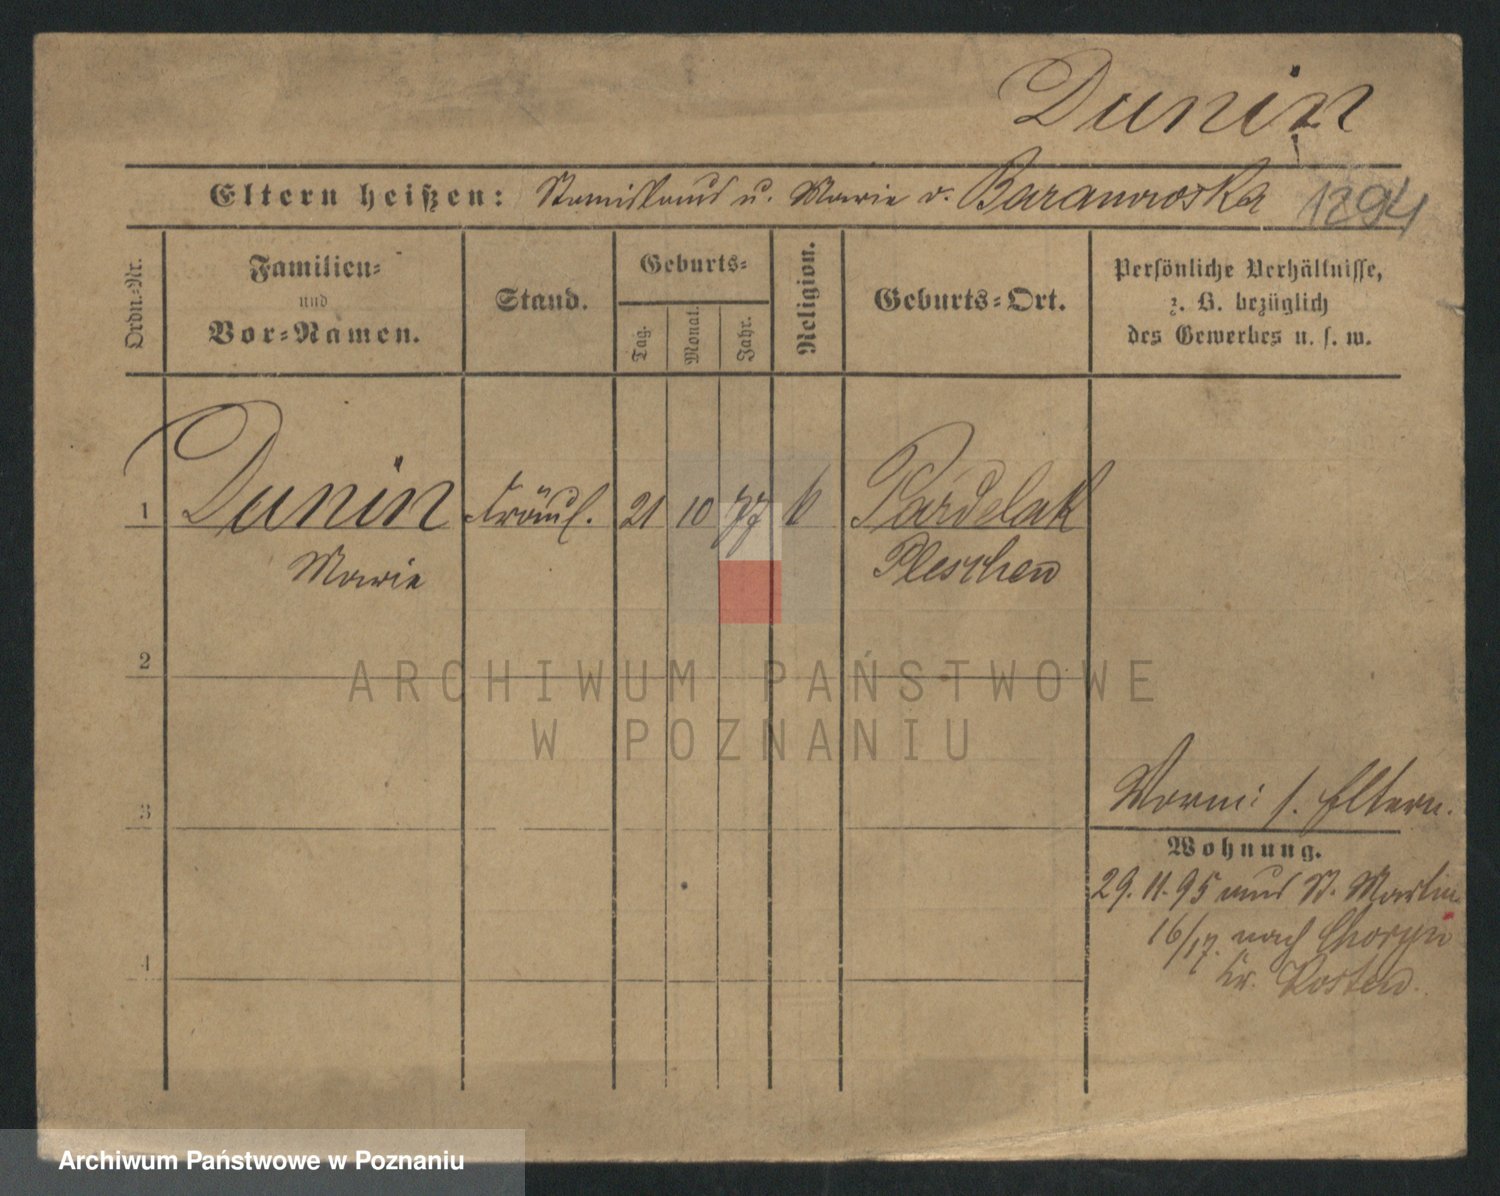 Dunin
Eltern heißen: Stanislaus u. Marie v. Baranowska 1294
Ordn.-Nr.
Familien-
und
Vor-Namen.
Stand.
Geburts-
Tag.
Monat.
Jahr.
Religion.
Geburts-Ort.
Persönliche Verhältnisse,
z. B. bezüglich
des Gewerbes u. s. w.
1 Dunin Fräul. 21 10 77 k Pardelak
Marie Pleschen
2
ARCHIWUM PAŃSTWOWE
W POZNANIU
3
Vorm: s. Eltern.
Wohnung.
29. 11. 95 aus St. Martin
16/17. nach Choryn
Kr. Kosten.
4
Archiwum Państwowe w Poznaniu